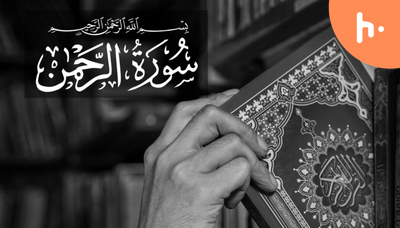 بِسْمِ اللَّهِ الرَّحْمَٰنِ الرَّحِيمِ
سُورَةُ الرَّحْمَٰن
h.